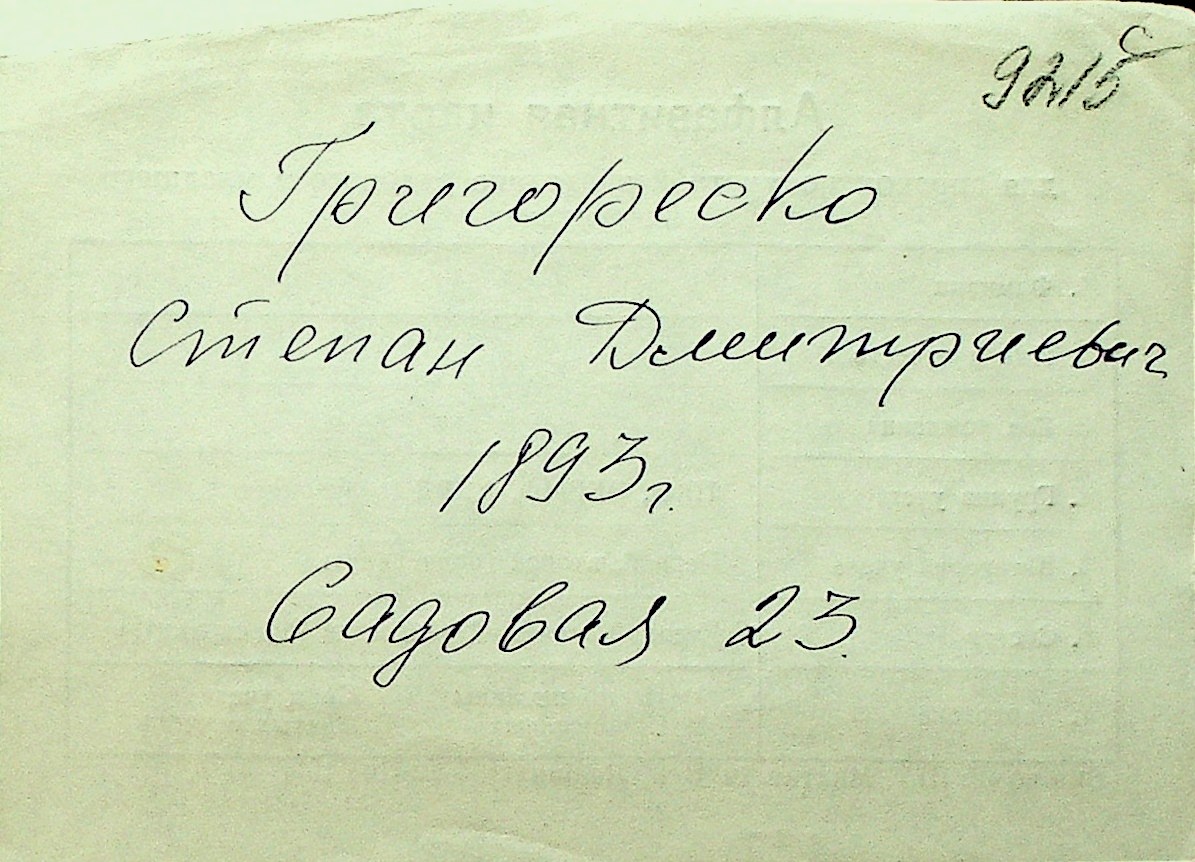 9215
Григореско
Степан Дмитриевич
1893 г.
Садовая 23.